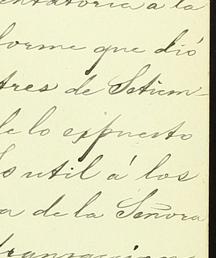 entatoria a la
forme que dió
tres de Setiem-
de lo expuesto
Es util á los
a de la Señora